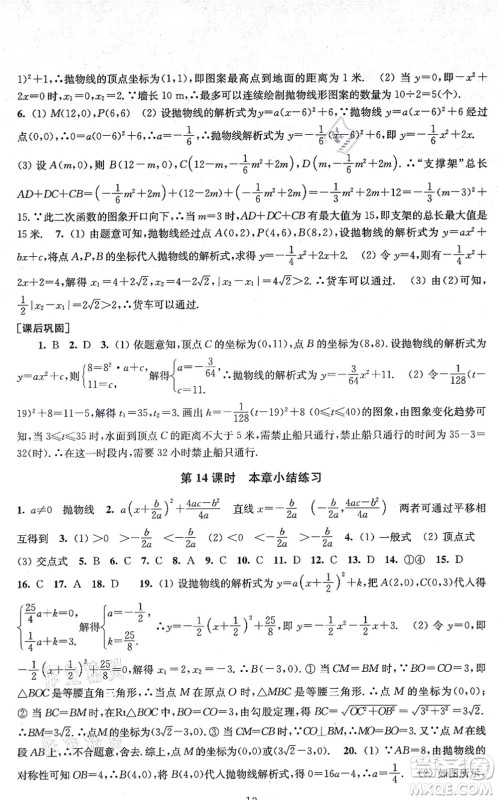 1)²+1,∴抛物线的顶点坐标为(1,1),即图案最高点到地面的距离为 1 米.  (2) 当 y=−x²+
2x=0 时,x₁=0,x₂=2.∵墙长 10 m,∴最多可以连续绘制抛物线形图案的数量为 10÷2=5(个).
6. (1) M(12,0),P(6,6)  (2) 设抛物线的解析式为 y=a(x−6)²+6.∵抛物线 y=a(x−6)²+6 经过
点(0,0),∴0=a(0−6)²+6,即 a=−1/6,∴抛物线的解析式为 y=−1/6(x−6)²+6,即 y=−1/6x²+2x.
(3) 设 A(m,0),则 B(12−m,0),C(12−m,−1/6m²+2m),D(m,−1/6m²+2m).∴“支撑架”总长
AD+DC+CB=(−1/6m²+2m)+(12−2m)+(−1/6m²+2m)=−1/3m²+2m+12=−1/3(m−3)²+
15.∵此二次函数的图象开口向下,∴当 m=3 时,AD+DC+CB 有最大值为 15,即支架的总长最大值是
15 米.  7. (1) 由题意可知,抛物线经过点 A(0,2),P(4,6),B(8,2).设抛物线的解析式为 y=ax²+
bx+c,将点 A,P,B 的坐标代入抛物线的解析式得抛物线的解析式为 y=−1/4x²+2x+2.  (2) 令−1/4
x²+2x+2=4,解得 x₁=4+2√2,x₂=4−2√2,则|x₂−x₁|=4√2>2,∴货车可以通过.  (3) 由(2)可知,
1/2|x₂−x₁|=2√2>2,∴货车可以通过.
[课后巩固]
1. B  2. D  3. (1) 依题意知,顶点 C 的坐标为(0,11),点 B 的坐标为(8,8).设抛物线的解析式为
y=ax²+c,则{8=8²·a+c,  c=11.}解得{a=−3/64,  c=11.}∴抛物线的解析式为 y=−3/64x²+11.  (2) 令−1/128(t−
19)²+8=11−5,解得 t₁=35,t₂=3.画出 h=−1/128(t−19)²+8(0≤t≤40)的图象,由图象变化趋势可
知,当 3≤t≤35 时,水面到顶点 C 的距离不大于 5 米,需禁止船只通行,禁止船只通行的时间为 35−3=
32(时).答:禁止船只通行的时间为 32 小时.
第 14 课时  本章小结练习
1. a≠0  抛物线  2. a(x+b/2a)²+(4ac−b²)/4a  直线 x=−b/2a  (−b/2a,(4ac−b²)/4a)  两者可通过平移相
互得到  3. (1) >0  <−b/2a  >−b/2a  (2) <0  <−b/2a  >−b/2a  4. (1) 一般式  (2) 顶点式
(3) 交点式  5. D  6. B  7. A  8. C  9. A  10. C  11. B  12. C  13. A  14. ①④  15. D
16. C  17. A  18. D  19. (1) 设抛物线的解析式为 y=a(x+1/2)²+k.把 A(2,0),C(0,3)代入得
{25/4a+k=0,  1/4a+k=3.}解得{a=−1/2,  k=25/8.}∴y=−1/2(x+1/2)²+25/8,即 y=−1/2x²−1/2x+3.  (2) 令 y=0,即
−1/2(x+1/2)²+25/8=0,解得 x₁=2,x₂=−3,∴B(−3,0).① 当 CM=BM 时,∵BO=CO=3,即
△BOC 是等腰直角三角形,∴当点 M 在原点 O 时,△MBC 是等腰三角形,∴点 M 的坐标为(0,0).
② 当 BC=BM 时,在Rt△BOC 中,BO=CO=3,由勾股定理得 BC=√(OC²+OB²)=√(3²+3²)=3√2,
∴BM=3√2,∴点 M 的坐标为(3√2−3,0).③ 当 CM=BC 时,∵CO⊥BM,∴MO=BO=3,此时 M 不在
线段 AB 上,不合题意,舍去.综上,点 M 的坐标为(3√2−3,0)或(0,0).  20. (1) ∵AB=4,∴由抛物线
的对称性可知 OB=4,∴点 B 的坐标为(4,0),代入抛物线的解析式可得 0=16a−4,∴a=1/4.  (2) 如图所示,